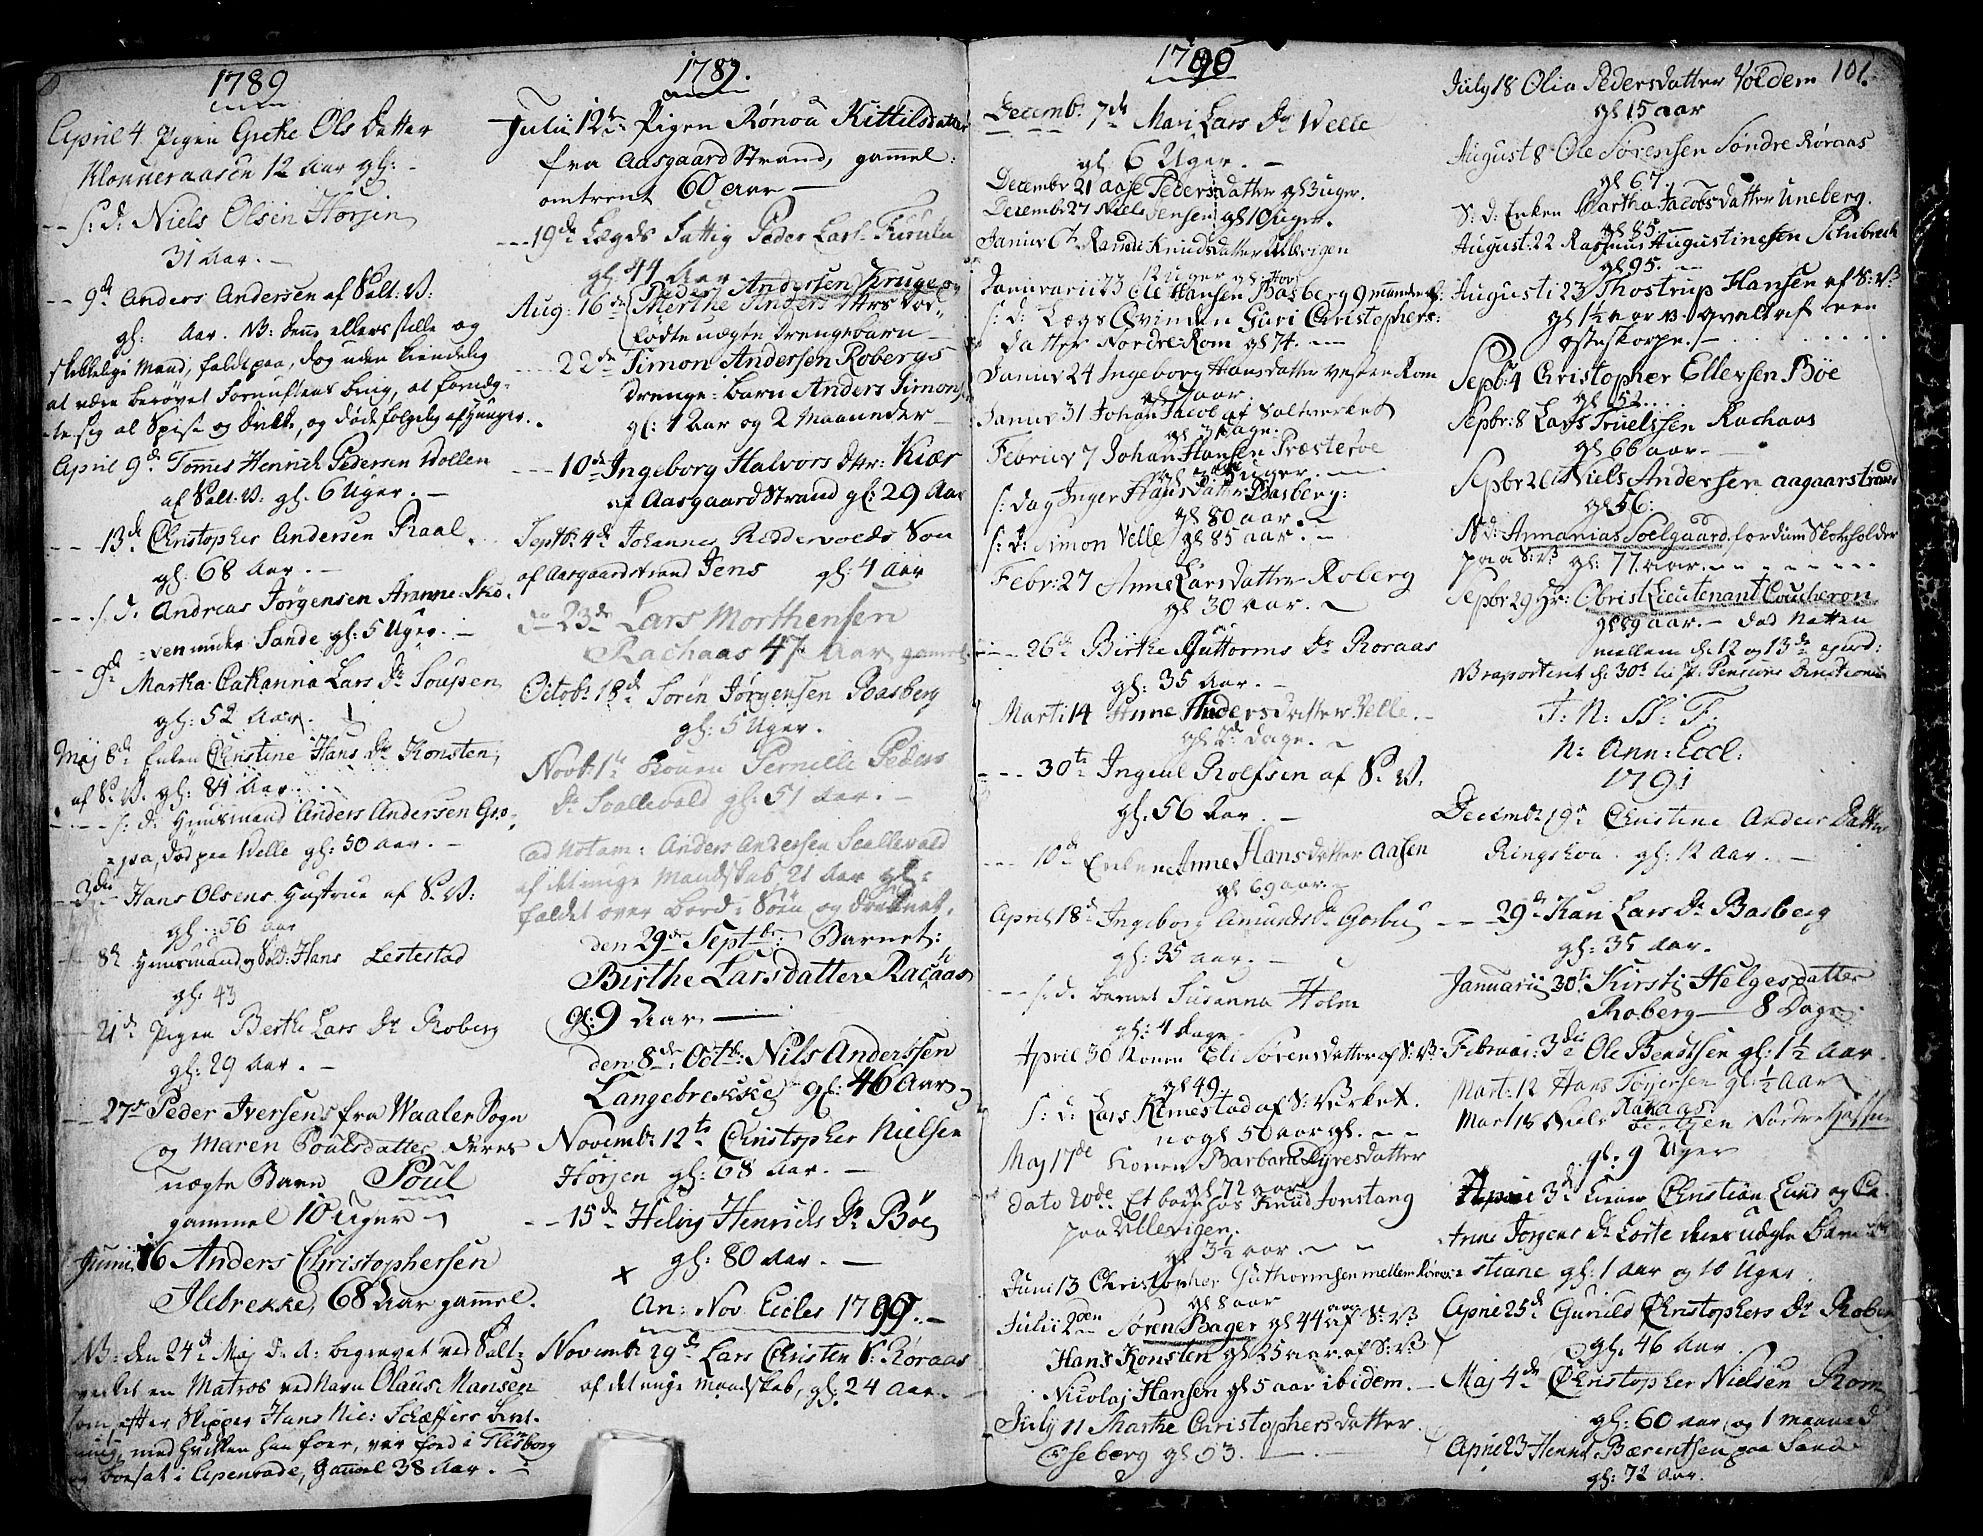 1789
April 4 Pigen Grethe Ols Datter
Klonneraasen 12 Aar gl: -
-- s: d: Niels Olsen Horsen
31 Aar. -
-- 9de Anders Andersen af Salt: V:
gl: Aar. NB: denne ellers stille og
skikkelige Mand, faldt paa, dog uden kiendelig
at være berøvet Fornuftens brug, at fornæg-
te sig al Spise og drikke, og døde følgelig af Hunger.
April 9de Tommes Henrich Pedersen Wollen
af Salt: V: gl. 6 Uger. -
-- 13de Christopher Andersen Raal.
gl: 68 Aar. -
--- s. d. Andreas Jørgensen Aronne-Sko-
ven under Sande gl: 5 Uger. -
-- 9de
Martha Catharina Lars Dr
gl: 52 Aar.
Maj 6de Enken Christine Hans Dr Konsten
af S. V. gl: 84 Aar.
---- s: d: Huusmand Anders Andersen Gro-
død paa Welle gl: 50 Aar. -
3die Hans Olsens Hustrue af S. V:
gl: 56 Aar
8de Huusmand og Sold: Hans Lestestad
gl. 43
21de Pigen Berthe Lars Dr Roberg
gl: 29 Aar. -
-- 27de Peder Iversens fra Waaler Sogn
og Maren Poulsdatter deres
uægte Barn Poul
gammel 10 Uger
Junii 16 Anders Christophersen
Ilebrekke, 68 Aar gammel.
NB: den 24de Maj d. A: begravet ved Salt-
værket en Matros ved Navn Olaus Hansen
som, efter Skipper Hans Nic: Schæffers beret-
ning, med hvilken han foer, var fød i Flensborg
og boesat i Apenrade, Gammel 38 Aar. -
1789.
Julii 12te Pigen Rønou Kittilsdatter
fra Aasgaard Strand, gammel:
omtrent 60 Aar -
--- 19de Lægds Fattig Peder Lars: Furulu
gl: 44 Aar
Peder Andersen Kruge og
Aug: 16de Merthe Anders dttrs død-
fødte uægte drengebarn -
22de Simon Andersen Robergs
drenge: barn Anders Simons:
gl: 1 Aar og 2 Maaneder -
--- 10de Ingeborg Halvors dttr: Kiær
af Aasgaard Strand gl: 29 Aar
Septb: 4de Johannes Reddervolds Søn
af Aasgaardstrand Jens gl: 4 Aar
do 23de Lars Morthensen
Rachaas 47 Aar gammel
Octob: 18de Søren Jørgensen Basberg
gl: 5 Uger.
Novb: 1te Konen Pernille Peders
Dr Scallevold gl: 51 Aar. -
ad Notam: Anders Andersen Scallevald
af det unge Mandskab 21 Aar gl:
faldet over bord i Søen og druknet.
den 29de Septbr: Barnet:
Birthe Larsdatter Racaas
gl: 9 Aar -
den 8de Octb: Nils Anderssen
Langebrekke gl: 46 Aar
Novemb: 12te Christopher Nielsen
Horsen gl: 68 Aar. -
-- 15de Helvig Henrichs Dr Bøe
gl: 80 Aar. -
x
An: Nov Eccles 1790.
Novemb: 29de Lars Christens: Røraas
af det unge Mandskab, gl: 24 Aar. -
1790
Decemb: 7de Mari Lars Dr Welle
gl: 6 Uger. -
December 21 Aase Pedersdatter gl 3 uger.
Decembr 27 Niels Jensen gl 10 uger.
Januar 6te Randi Knudsdatter Ullevigen
12 Uger gl:
Januarii 23 Ole Hansen Basberg 9 maaneder gl:
s: d: Lægs Qvinden Guri Christophers:
datter Nordre Rom gl 74. --
Januar 24 Ingeborg Hansdatter Vestre Rom
gl aar.
Januar 31 Johan Jacob af Saltverket
gl 3 dage.
Februar 7 Johan Hansen Præsterøe
gl uger. -
s: dag Inger Hansdatter Basberg:
gl 80 aar. -
s: d: Simon Velle gl 85 aar. -
Febr: 27 Anne Larsdatter Roberg
gl 30 aar. -
--- 26de Birthe Guttorms Dr Roraas
gl: 35 Aar. -
Marti 14 Anne Andersdatter Velle. -
gl 2 dage. -
--- 30te Ingeul Rolfsen af S. V.
gl. 56 Aar. -
--- 10de Enken Anne Hansdatter Aasen
gl 69 aar. -
April 18de Ingeborg Amunds Dr Gorbu
gl: 35 aar. -
-- s. d. barnet Susanna Holm
gl: 4 dage
April 30 Konen Eli Sørensdatter af S: V:
gl 49.
s: d: Lars Kimestad af S: Verket.
50 aar gl. --
Maj 17de Konen Barbara Dyresdatter
gl 72 aar
dato 20de Et barn hos Knud Jonstang
paa Ullevigen.
gl 3½ aar. --
Juni 13 Christopher Guthormsen mellem Røraas
gl 8 aar
Julii 2den Søren Bager gl 44 aar af S: V:
Hans Konsten gl 25 aar af S: V:
Nicolaj Hansen gl 5 aar ibidem. -
July 11 Marthe Christophersdatter
Oseberg gl 53. -
101.
July 18 Olia Pedersdatter Voldem
gl 15 aar
August 8 Ole Sørensen Søndre Røraas
gl 67.
S: d: Enken Martha Jacobsdatter Uneberg.
gl 85.
August: 22 Rasmus Augustinesen Schibrech
gl 95. --
Augusti 23 Thostrup Hansen af S: V:
gl 1½ aar NB qvalt af een
osteskorpe. -
Sepbr 4 Christopher Ellevsen Bøe
gl 52...
Sepbr: 8 Lars Truelssen Rachaas
gl 66 aar. -
Sepbr 26 Niels Andersen Aagaarstrand
gl 56:
N d: Annanias Soelgaard, fordum Skoleholder
paa S: V: gl: 77 aar. -
Sepbr 29 Hr: Obrist Lieutenant Coucheron
gl 89 aar. - død natten
mellem d: 12 og 13de
NB raportent d: 30t til
I: N: SS: T:
N: Ann: Eccl:
1791
Decemb: 19de Christine Anders Datter
Ringshou. gl: 12 Aar. -
-- 29de Kari Lars Dr Basberg
gl: 35 Aar.
Januarii 30te Kirsti Helgesdatter
Roberg - 8 Dage
Februar: 3die Ole Bendtsen gl: 1½ Aar
Mart: 12 Hans Torjersen gl: ½ Aar
Rakaas.
Mart 18 Niels Nordre
gl. 9 Uger
April 3de Christian Lunds og Ca-
Anne Jørgens Dr deres uægte Barn
stiane gl: 1 Aar og 10 Uger.
April 25de Gunild Christophers Dr Roberg
gl. 46 Aar.
Maj 4de Christopher Nielsen Rom
gl: 60 aar og 1 maaned
April 23 Henni Bærentsen paa Sande
gl: 72 Aar.